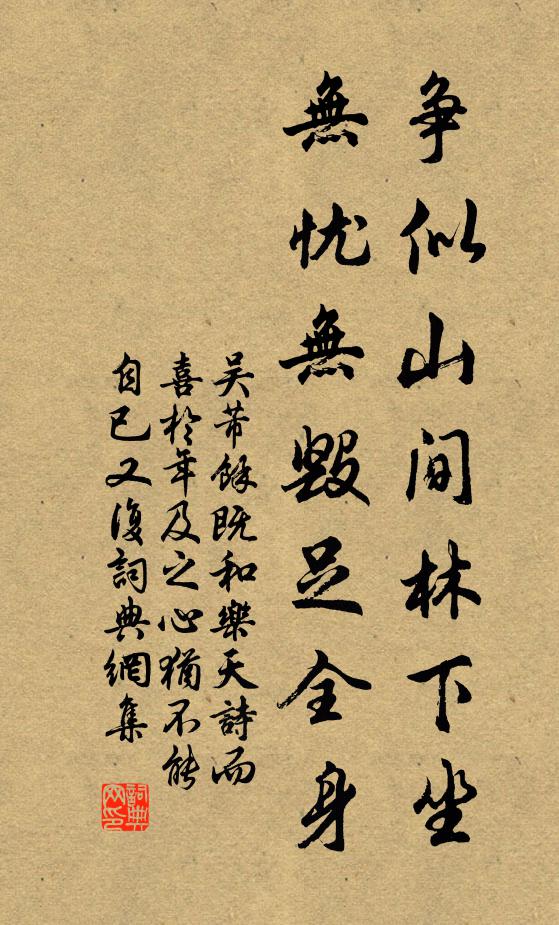 争似山間林下坐
無忧無毀足全身
吴芾餘既和樂天詩而
喜於年及之心猶不能
自已又復詞典網集
詞典
网印